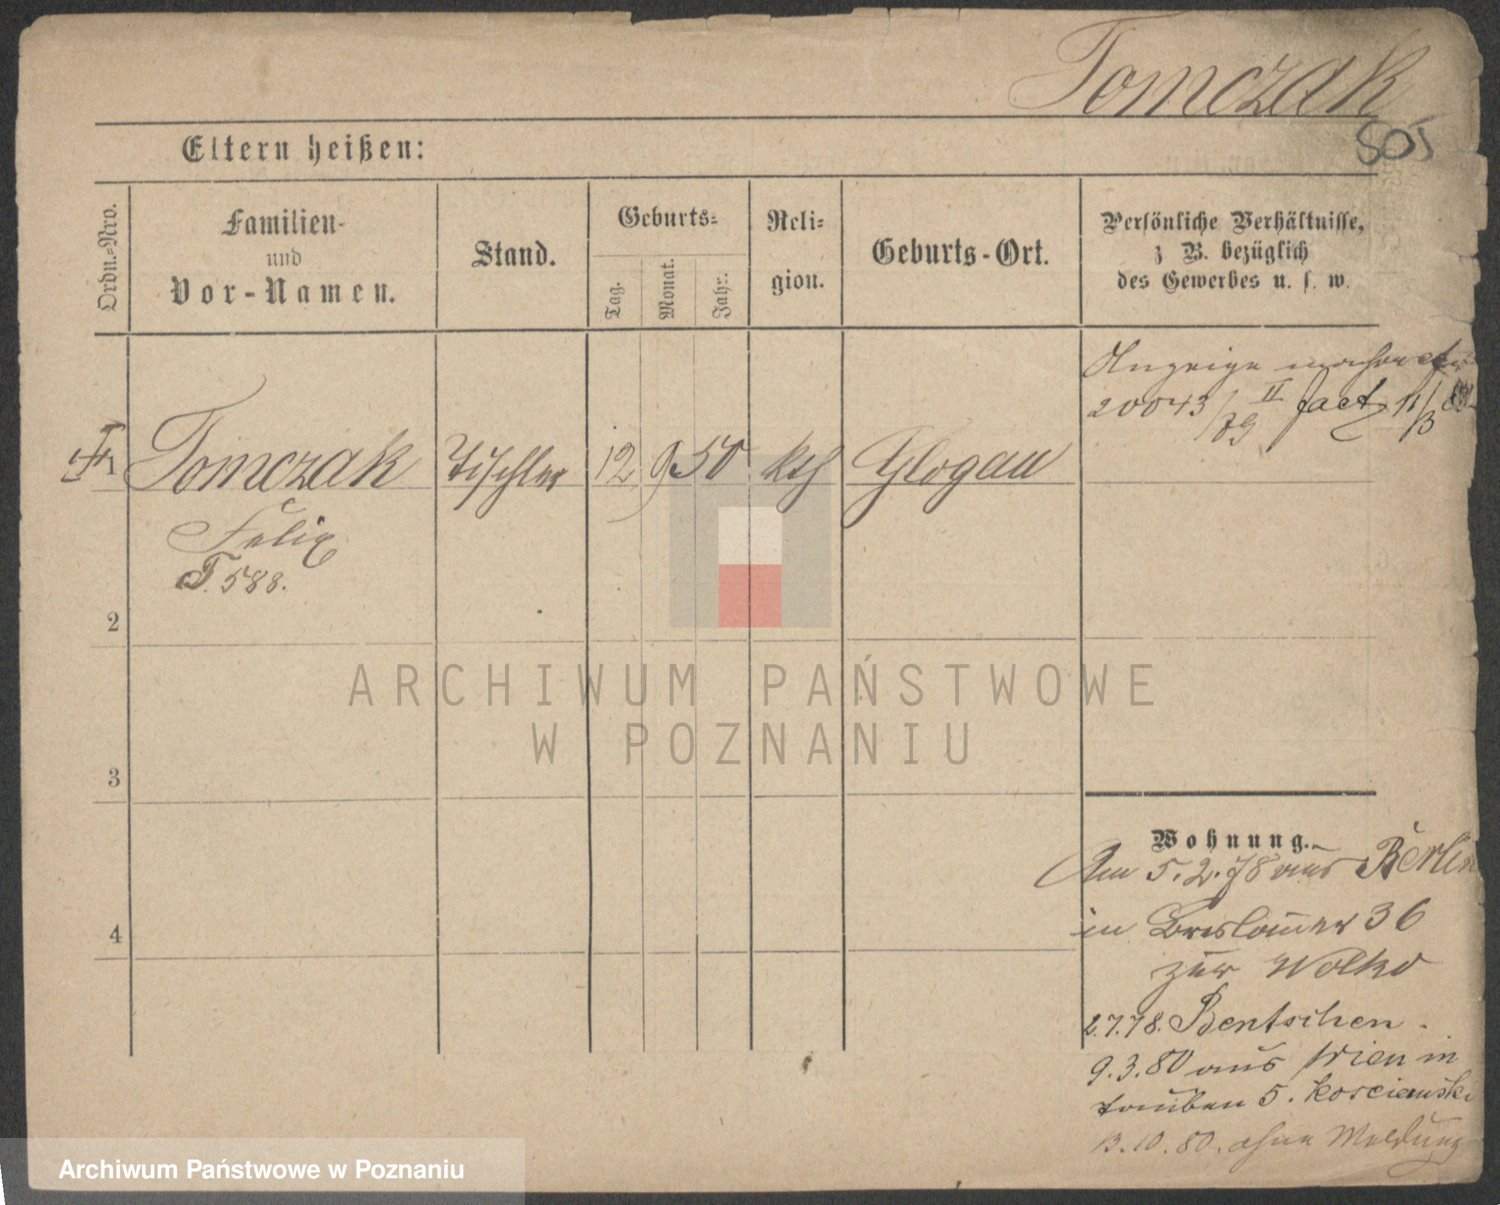 Tomczak
505
Eltern heißen:
Ordn.-Nro.
Familien-
und
Vor-Namen.
Stand.
Geburts-
Tag.
Monat.
Jahr.
Reli-
gion.
Geburts-Ort.
Persönliche Verhältnisse,
z. B. bezüglich
des Gewerbes u. s. w.
Anzeige
20043/79 II fact 11/3
1 Tomczak Tischler 12 9 50 kth Glogau
Felix
T. 588.
2
3
4
Wohnung.
Am 5.2.78 aus Berlin
in Breslauer 36
zur Wolko
2.7.78. Bentschen.
9.3.80 aus Wien in
Tauben 5. Koscienski
13.10.80. ohne Meldung
ARCHIWUM PAŃSTWOWE
W POZNANIU
Archiwum Państwowe w Poznaniu